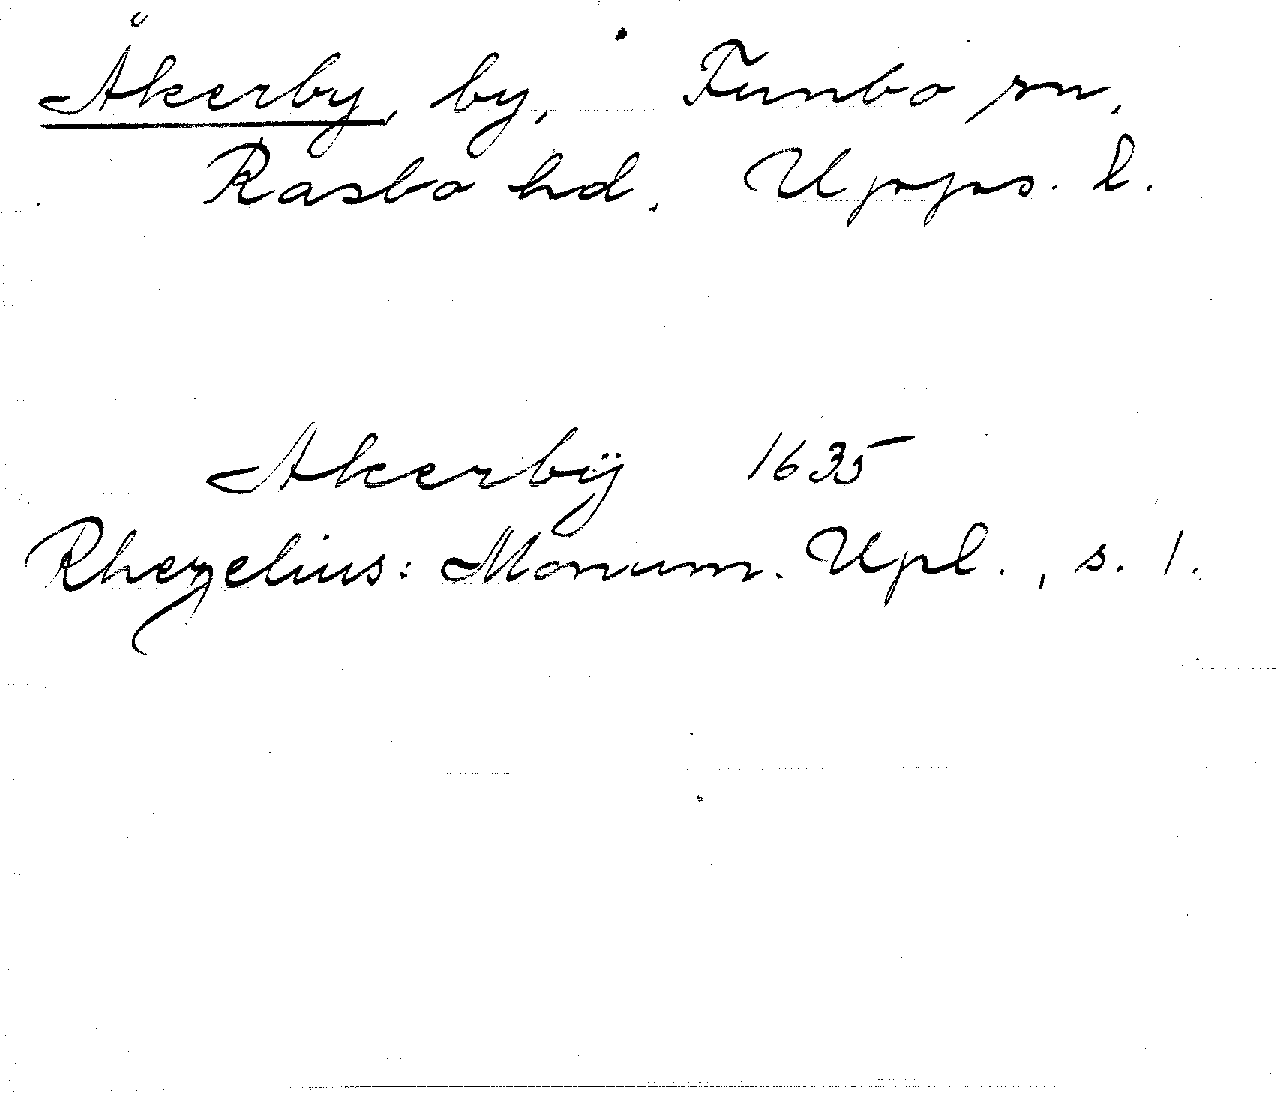 Åkerby, by, Funbo sn,
Rasbo hd. Upps. l.
Akerbÿ 1635
Rhezelius: Monum. Upl., s. 1.